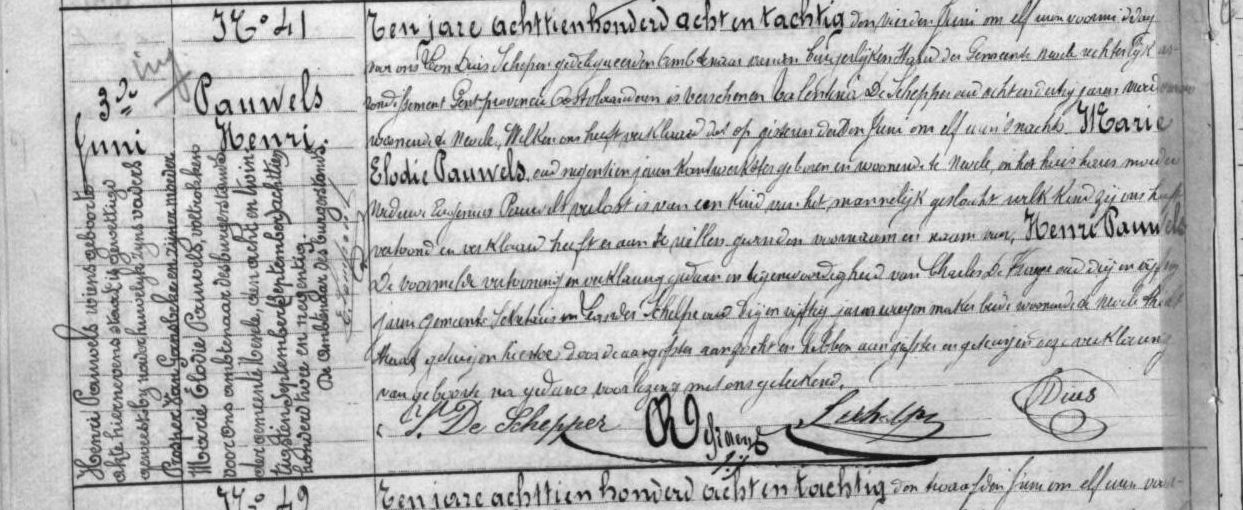 N.º 41
3de
Juni
Pauwels
Henri.
Henri Pauwels wiens geboorte-
akte hiernevens staat is gewettigd
geweest by het huwelyk zyns vaders
Prosper Van Gansbeke en zyner moeder
Marie Elodie Pauwels, voltrokken
voor ons ambtenaar des burgerstands
der gemeente Nevele, den acht en twin-
tugsten September achttien
honderd twee en negentig.
De ambtenaar des burgerstands.
Ten jare achttien honderd acht en tachtig den vierden Juni om elf uren voormiddag
voor ons Leon Duis Schepen gedelegueerden Ambtenaar van den burgerlijken Stand der Gemeente Nevele rechterlijk ar-
rondissement Gent provincie Oostvlaanderen is verschenen Valentina De Schepper oud acht en dertig jaren vroedvrouw
woonende te Nevele, Welke ons heeft verklaard dat op gisteren derden Juni om elf uren 's nachts Marie
Elodie Pauwels, oud negentien jaren kantwerkster geboren en woonende te Nevele, in het huis harer moeder
Weduwe Eugenius Pauwels verlost is van een kind van het mannelijk geslacht welk kind zij ons heeft
vertoond en verklaard heeft er aan te willen geven den voornaam en naam van, Henri Pauwels
De voormelde vertooning en verklaring gedaan in tegenwoordigheid van Charles De oud drij en vijftig
jaren gemeente Sekretaris en Leander Schelpe oud drij en vijftig jaren makker beide woonende te Nevele
getuigen hiertoe door de aangeefster aangezocht en hebben aangeefster en getuigen deze verklaring
van geboorte na gedane voorlezing met ons geteekend.
V. De Schepper L. Schelpe Duis
N.º 42
Ten jare achttien honderd acht en tachtig den twaalfden Juni om elf uren voor-